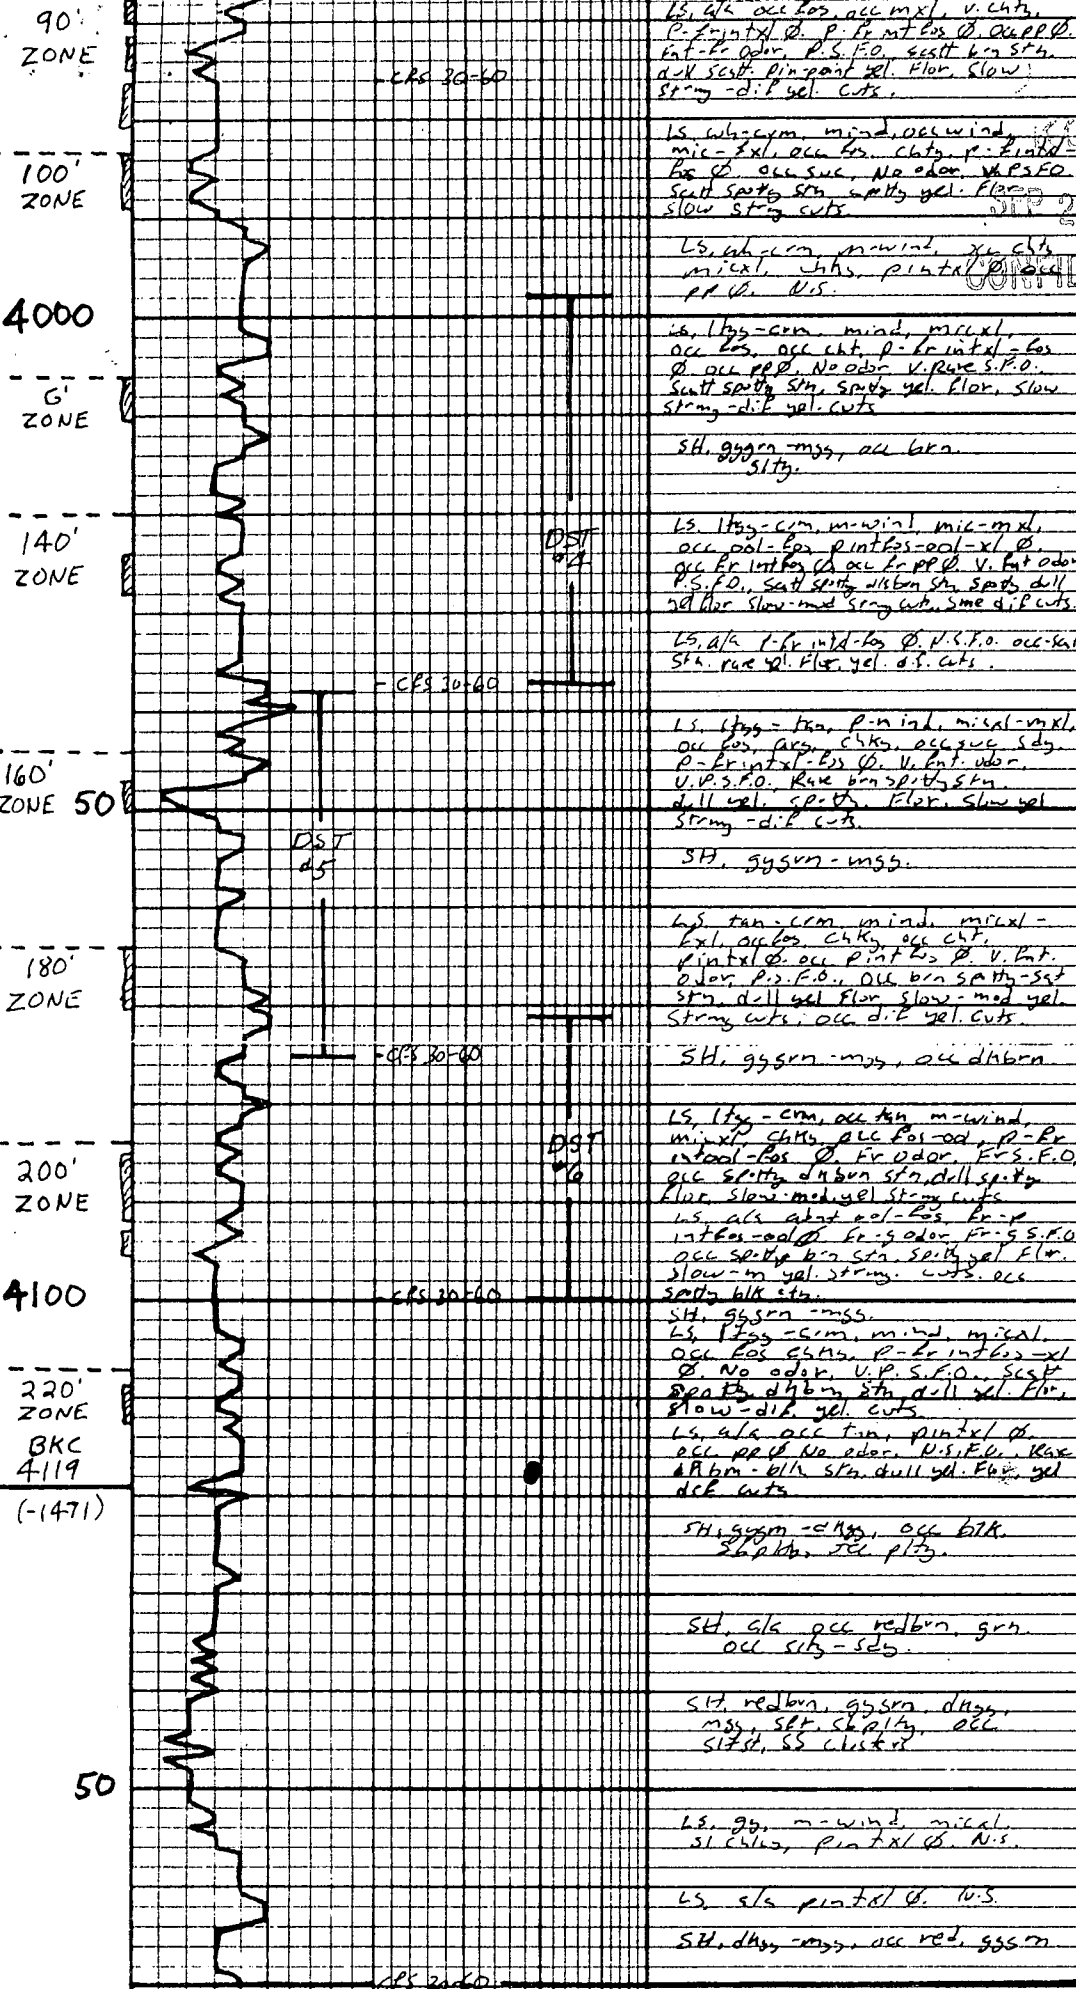 90'
ZONE
LS, a/a occ fos, occ mxl, v. chty,
p-frintxl Ø. p-fr intfos Ø. occ pp Ø.
fnt-fr odor, P.S.F.O. scatt brn stn.
dull scatt. pin-point yel. Flor, Slow
strmg-dif yel. cuts.
-CFS 30-60
100'
ZONE
LS wh-crm, mind, occ wind,
mic-fxl, occ fos. chty, p-fintxl-
fos Ø occ suc, No odor, V.P.S.F.O
Scatt spotty stn spotty yel. Flor
Slow strmg cuts.
SEP 2
LS, wh-crm m-wind, chty
micxl, chky, pintxl Ø occ
pp Ø. N.S.
4000
LS, ltgy-crm, mind, micxl,
occ fos, occ cht, p-fr intxl-fos
Ø occ pp Ø. No odor V. Rare S.F.O.
Scatt spotty stn, spotty yel. Flor, Slow
strmg-dif yel. cuts
G'
ZONE
SH, gygrn-mgy, occ brn.
slty.
140'
ZONE
LS, ltgy-crm, m-wind, mic-mxl,
occ ool-fos pintfos-ool-xl Ø.
occ fr intfos Ø occ fr pp Ø. V. fnt odor
P.S.F.O., Scatt spotty brn stn, spotty dull
yel flor slow-mod strmg cuts, sme dif cuts.
DST
#4
LS, a/a p-fr intxl-fos Ø. N.S.F.O. occ-
Stn. rare yel. Flor, yel. dif. cuts.
-CFS 30-60
160'
ZONE
50
LS, ltgy-tan, p-m ind, micxl-mxl,
occ fos, chky, occ suc sdy.
p-frintxl-fos Ø. V. fnt. odor,
V.P.S.F.O. Rare brn spotty stn
dull yel. spotty. Flor, slow yel
strmg-dif cuts.
DST
#5
SH, gygrn-mgy.
180'
ZONE
LS tan-crm, mind, micxl-
fxl, occ fos, chky, occ cht.
pintxl Ø. occ pintfos Ø. V. fnt.
odor, P.S.F.O., occ brn spotty-sat
stn, dull yel Flor, slow-mod yel.
strmg cuts, occ dif yel. cuts.
-CFS 30-60
SH, gygrn-mgy, occ dkbrn
200'
ZONE
LS, ltgy-crm, occ tan m-wind,
micxl, chky, occ fos-ool, p-fr
intool-fos Ø. Fr odor, Fr S.F.O,
occ spotty dkbrn stn, dull spotty
flor, slow-mod yel strmg cuts
DST
#6
LS a/a abnt ool-fos, fr-p
intfos-ool Ø. Fr-g odor, Fr-g S.F.O
occ spotty brn stn, spotty yel Flor.
slow-m yel. strmg. cuts. occ
spotty blk stn.
4100
-CFS 30-60
SH, gygrn-mgy.
LS, ltgy-crm, mind, micxl.
occ fos chky, p-fr intfos-xl
Ø. No odor, V.P.S.F.O., Scatt
spotty dkbrn stn, dull yel. Flor,
slow-dif. yel. cuts
220'
ZONE
BKC
4119
(-1471)
LS, a/a occ tan, pintxl Ø.
occ pp Ø No odor, N.S.F.O., Rare
dkbrn-blk stn, dull yel. Flor, yel
dif cuts
SH, gygrn-dkgy, occ blk.
sbplty, occ plty.
SH, a/a occ redbrn, grn.
occ slty-sdy.
SH, redbrn, gygrn, dkgy,
mgy, sft, sbplty, occ
sltst, SS clusters
50
LS, gy, m-wind, micxl.
sl chky, pintxl Ø. N.S.
LS, a/a pintxl Ø. N.S.
SH, dkgy-mgy, occ red, gygrn
CFS 30-60